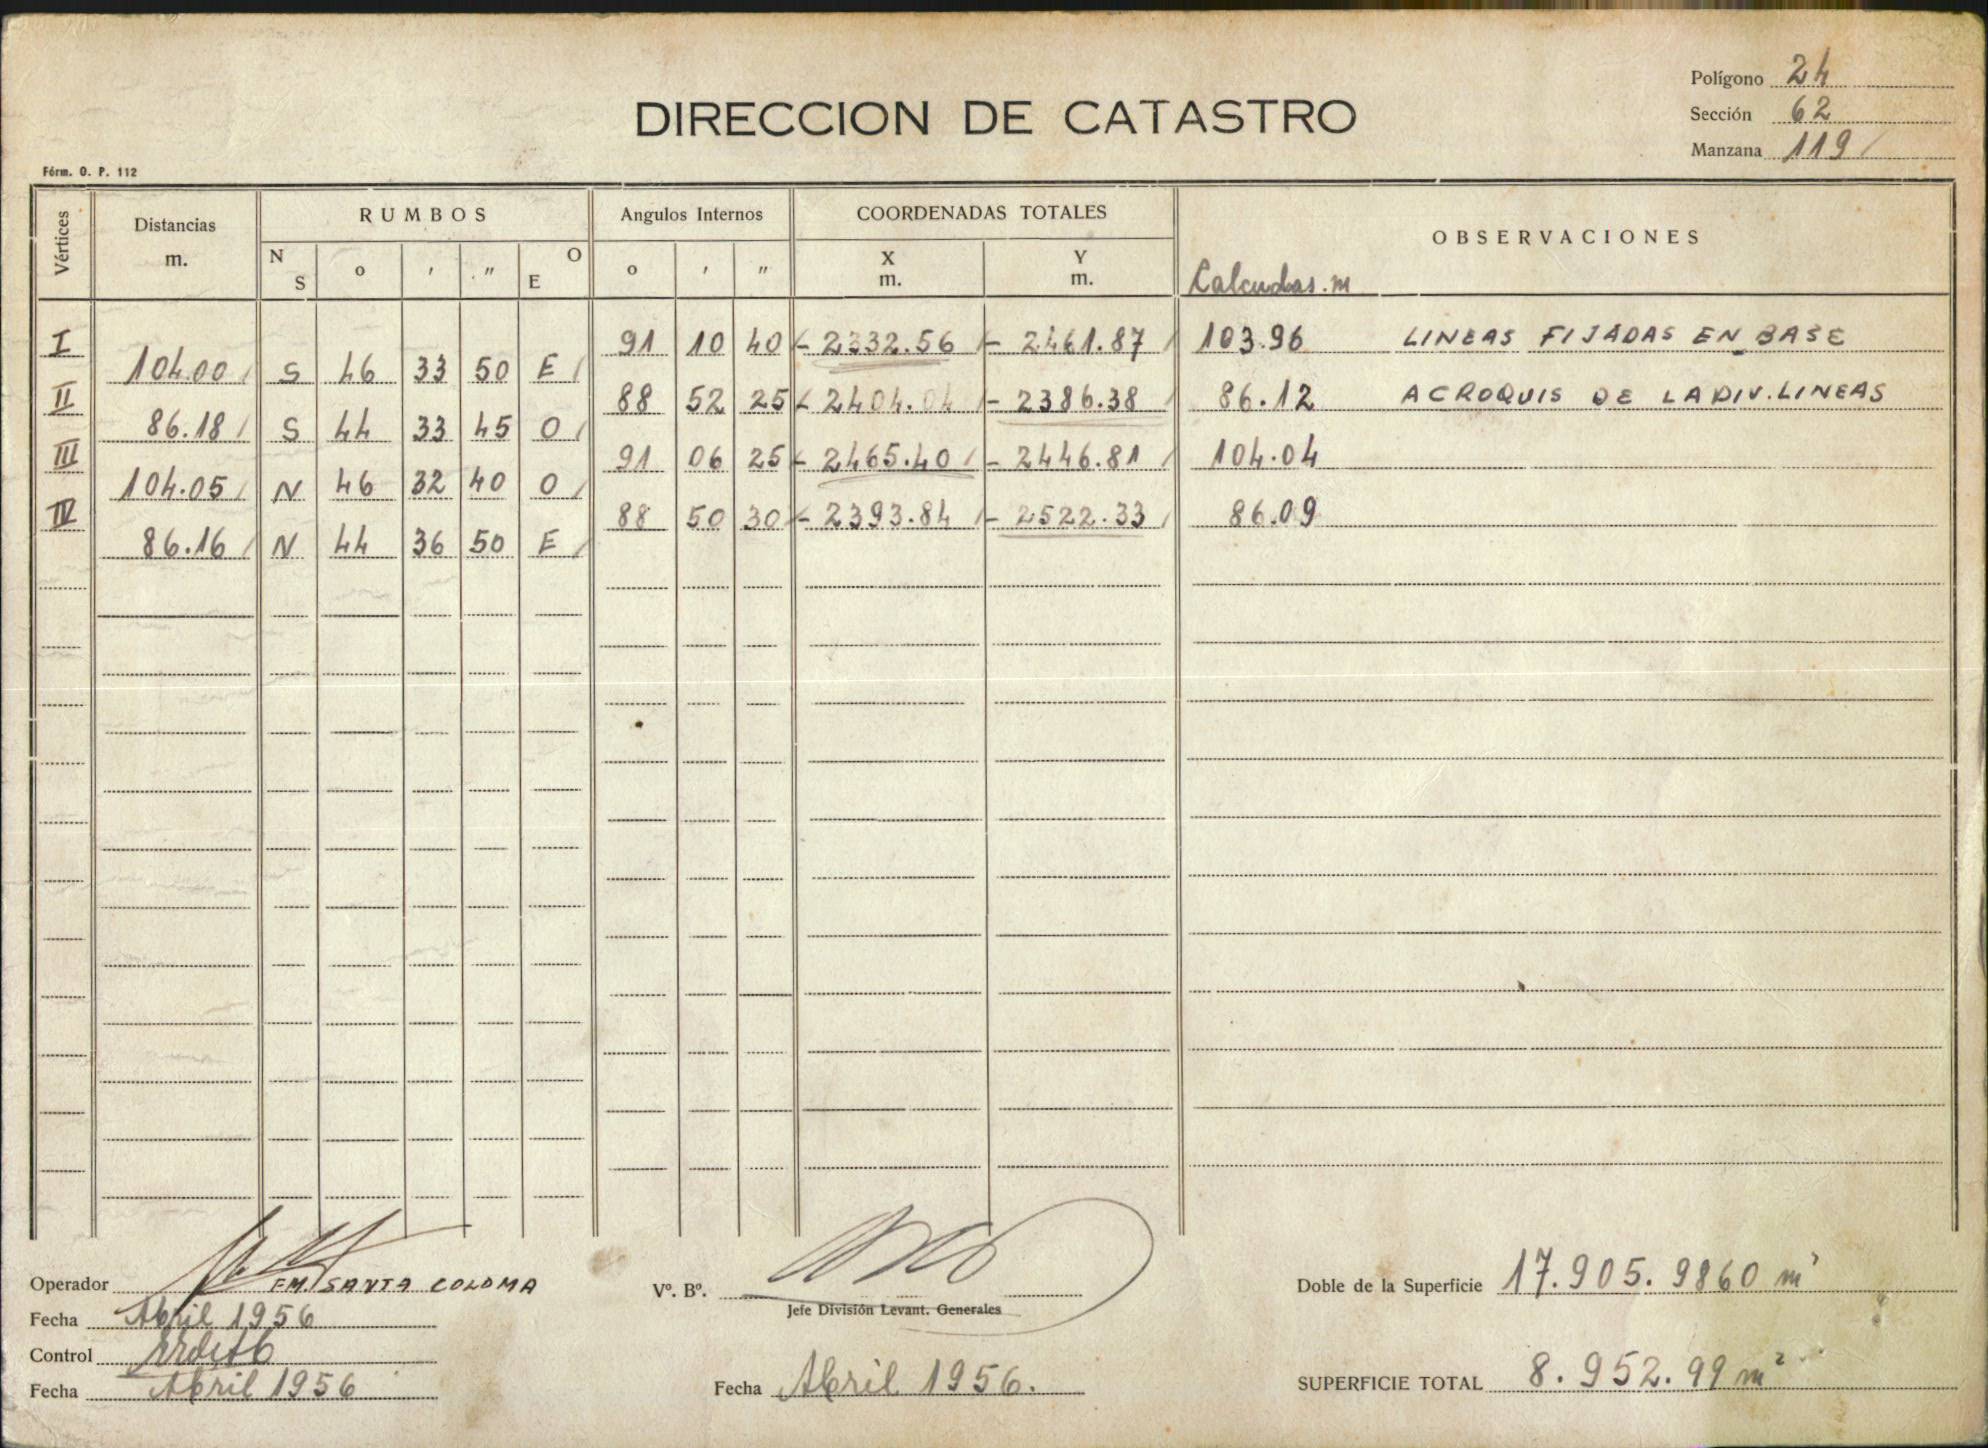 Polígono 24
DIRECCION DE CATASTRO
Sección 62
Manzana 119
Fórm. O. P. 112
Vértices Distancias m. RUMBOS Angulos Internos COORDENADAS TOTALES OBSERVACIONES
N S o ' " O E o ' " X m. Y m. Calculdas.m
I 91 10 40 - 2332.56 - 2461.87 103.96 LINEAS FIJADAS EN BASE
104.00 S 46 33 50 E
II 88 52 25 - 2404.04 - 2386.38 86.12 ACROQUIS DE LA DIV. LINEAS
86.18 S 44 33 45 O
III 91 06 25 - 2465.40 - 2446.81 104.04
104.05 N 46 32 40 O
IV 88 50 30 - 2393.84 - 2522.33 86.09
86.16 N 44 36 50 E
Operador F.M. SANTA COLOMA
Vº. Bº.
Doble de la Superficie 17.905.9860 m²
Jefe División Levant. Generales
Fecha Abril 1956
Control
Fecha Abril 1956
Fecha Abril 1956.
SUPERFICIE TOTAL 8.952.99 m²